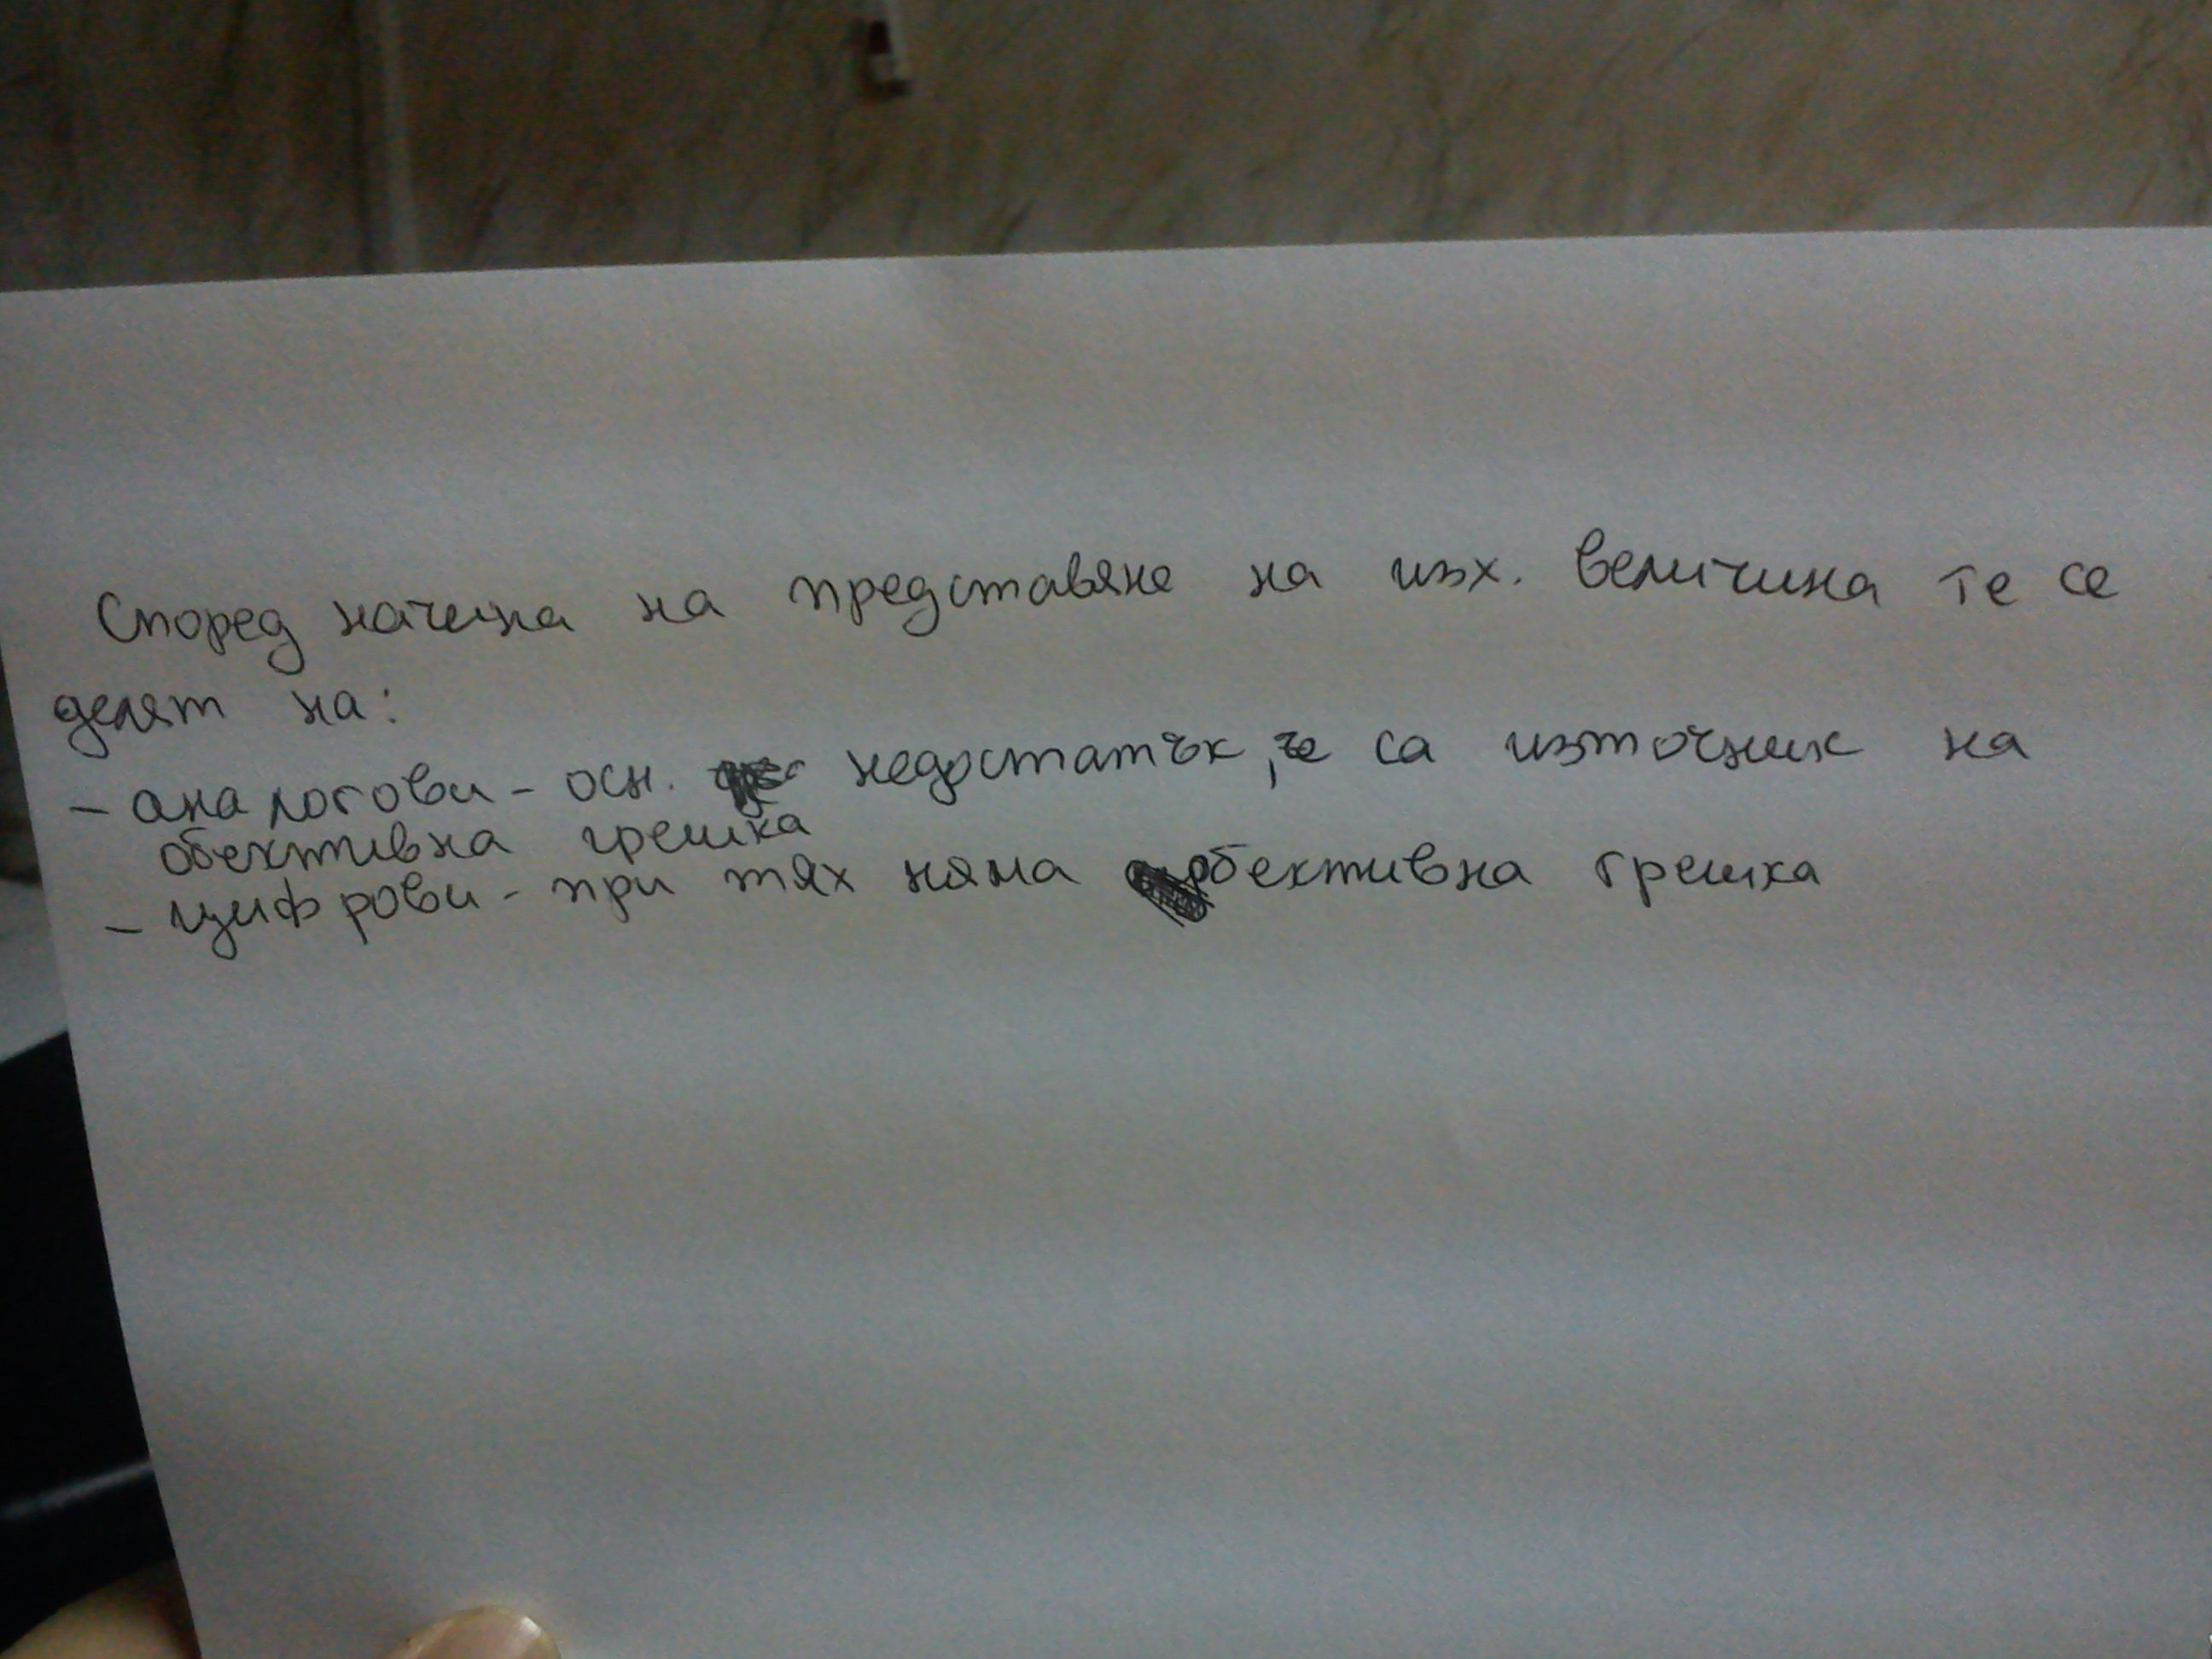 Според начина на представяне на изх. величина те се
делят на:
- аналогови - осн. недостатък, че са източник на
обективна грешка
- цифрови - при тях няма обективна грешка